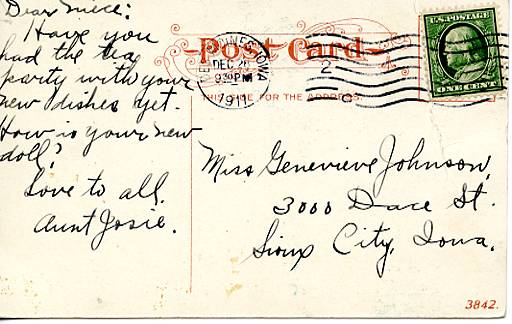 Dear Niece:
Have you
had the tea
party with your
new dishes yet.
How is your new
doll?
Love to all.
Aunt Josie.
Post Card
THIS SIDE FOR THE ADDRESS.
DES MOINES, IOWA
DEC 26
930 PM
1911
2
C
U.S. POSTAGE
ONE CENT
Miss Genevieve Johnson,
3000 Dace St.
Sioux City, Iowa.
3842.